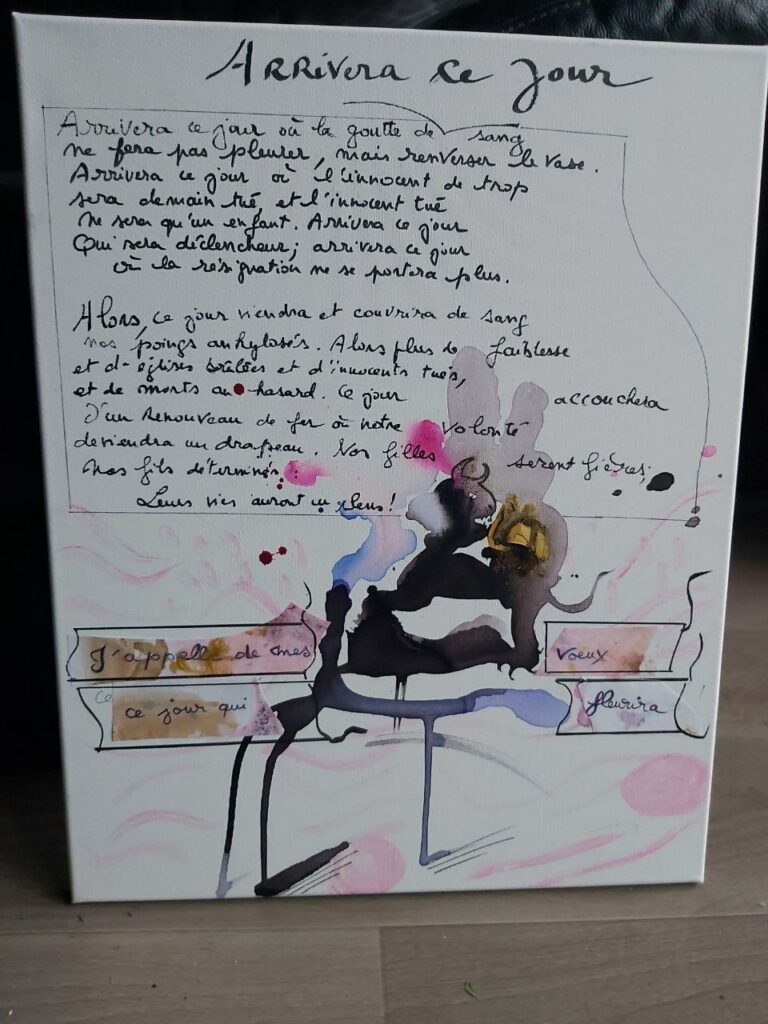 Arrivera ce jour
Arrivera ce jour où la goutte de sang
ne fera pas pleurer, mais renverser le vase.
Arrivera ce jour où l'innocent de trop
sera demain tué et l'innocent tué
ne sera qu'un enfant. Arrivera ce jour
Qui sera déclencheur; arrivera ce jour
où la résignation ne se portera plus.
Alors, ce jour viendra et couvrira de sang
nos poings ankylosés. Alors plus de faiblesse
et d'églises brûlées et d'innocents tués,
et de morts au hasard. Ce jour accouchera
D'un renouveau de fer où notre volonté
deviendra un drapeau. Nos filles seront fières;
Nos fils déterminés.
Leurs vies auront un sens!
J'appelle de mes voeux
ce
ce jour qui fleurira